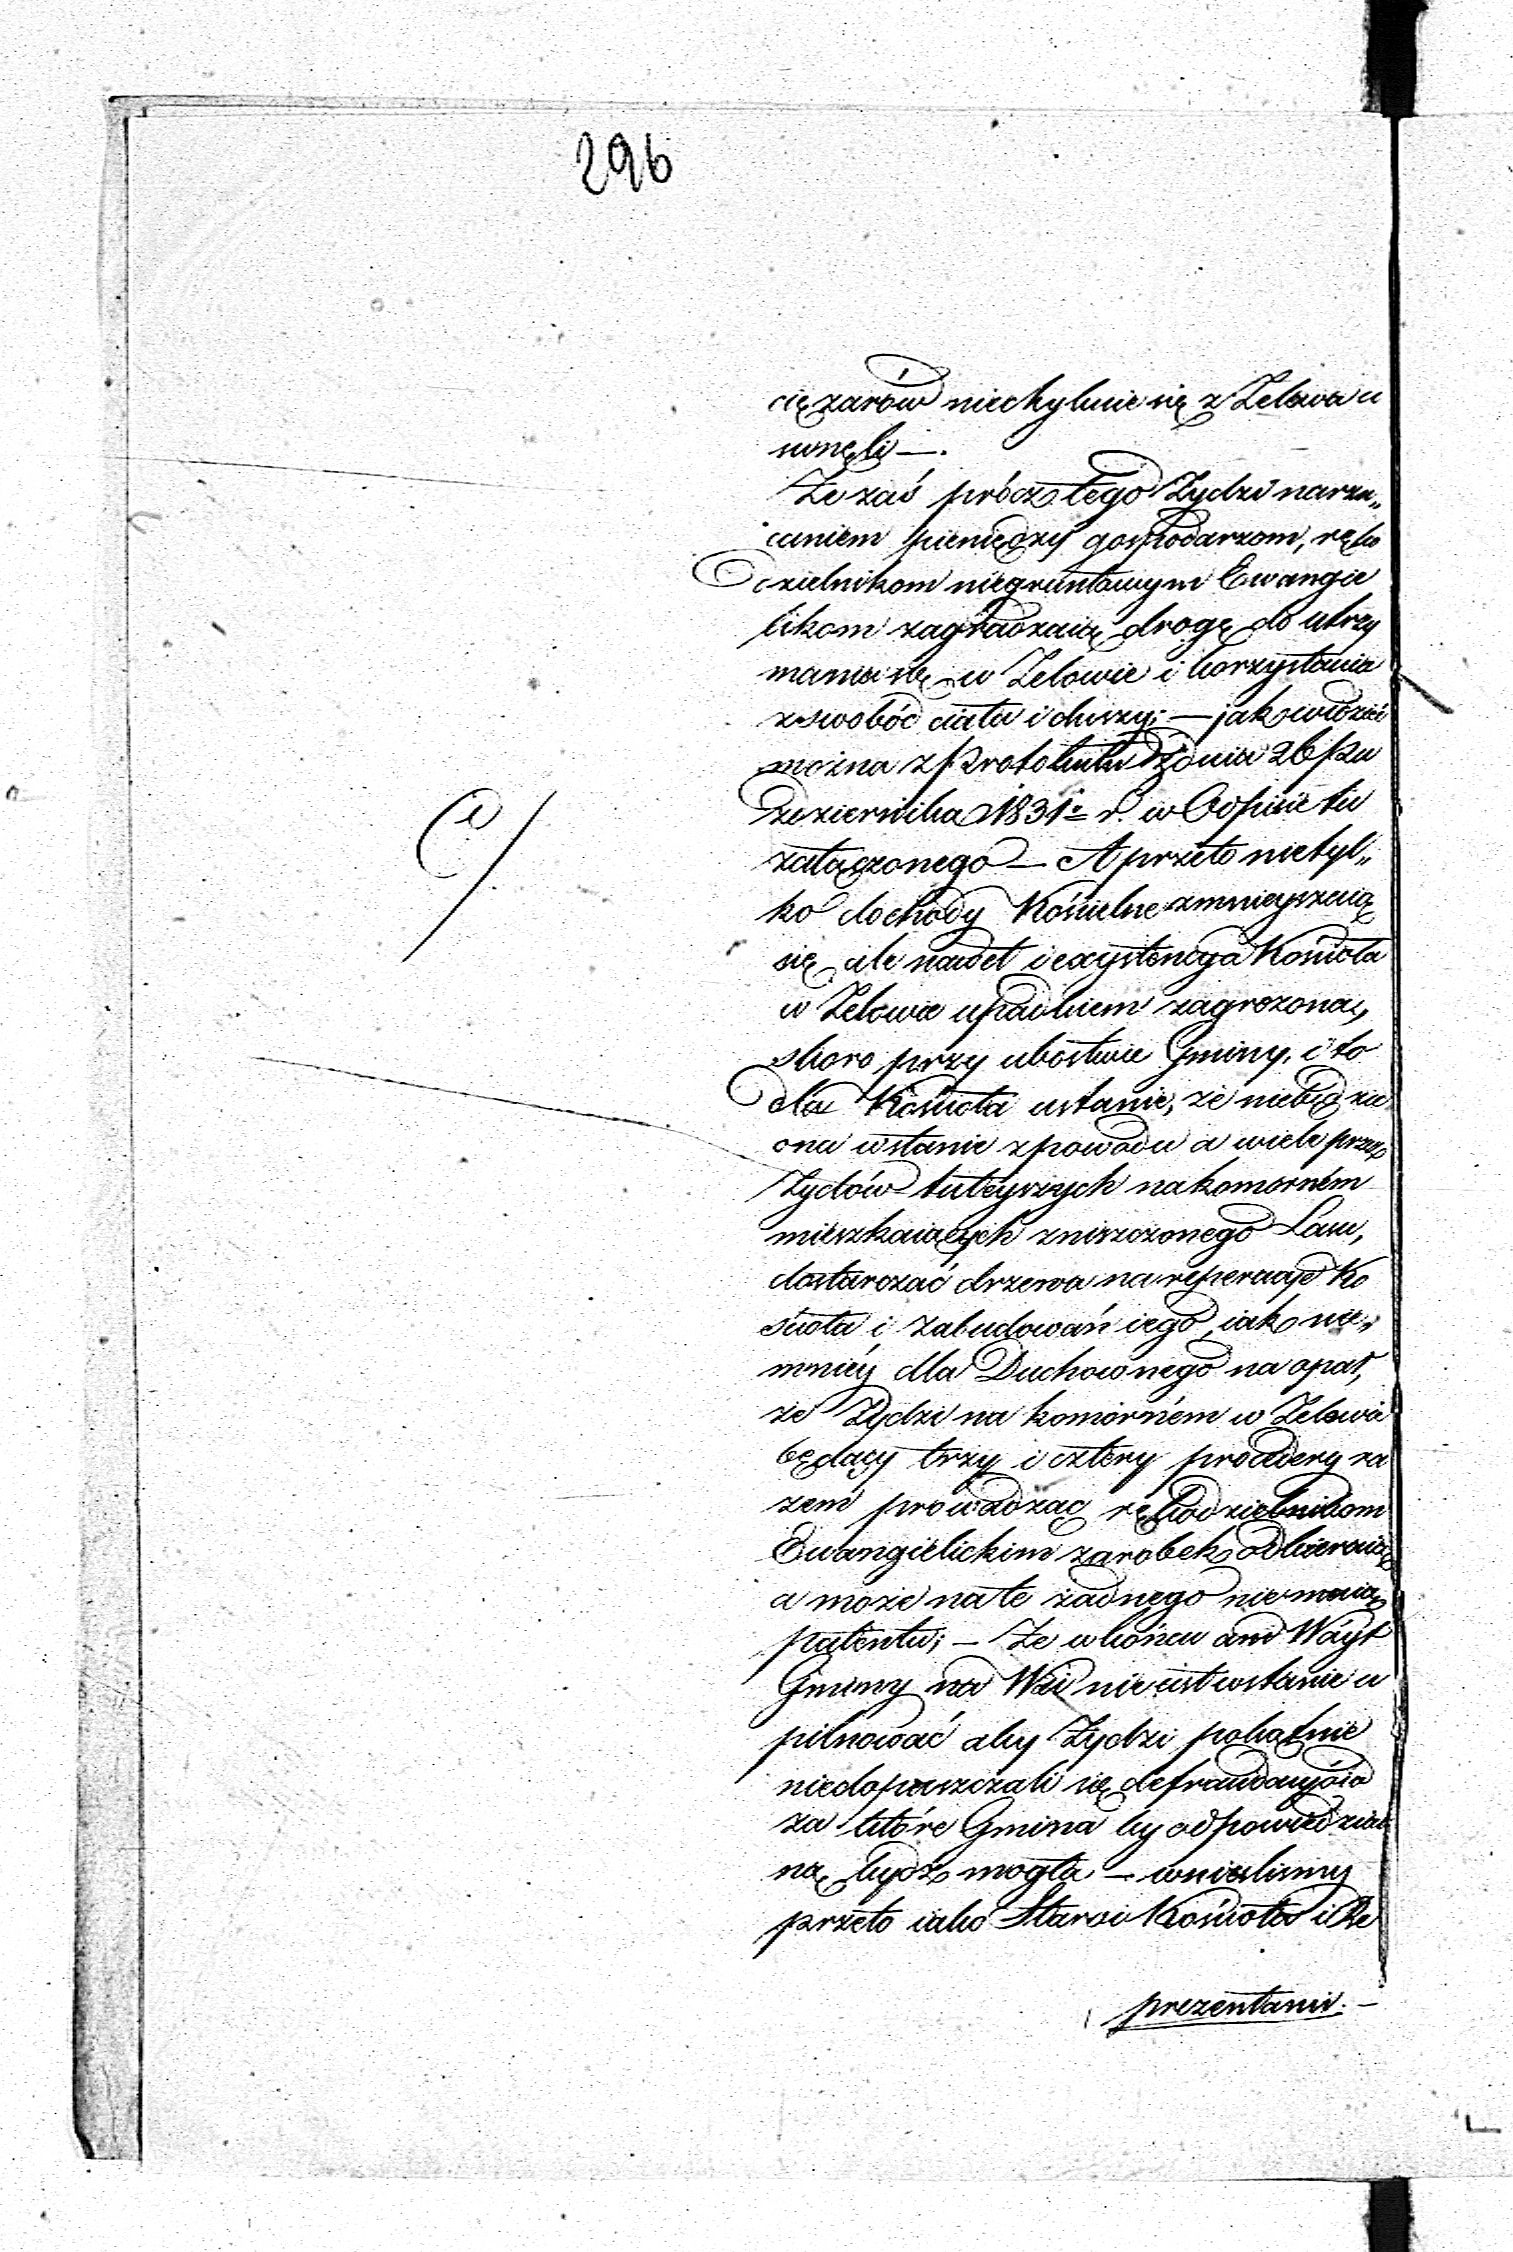 296
ciężarów niechybnie się z Zelowa u
sunęli —.
Że zaś prócz tego Żydzi narzu„
caniem pieniędzy gospodarzom, ręko
dzielnikom niegruntowym Ewangie
likom zagradzaią drogę do utrzy
mania się w Zelowie i korzystania
z swobód ciała i duszy; — jak widzieć
można z Protokułu z dnia 26 Pa
zdziernika 1831º r. w Odpisie tu
załączonego — A przeto nietyl„
ko dochody Kościelne zmnieyszaią
się ale nawet i exystencya Kościoła
w Zelowie upadkiem zagrożona,
skoro przy ubostwie Gminy, i to
dla Kościoła ustanie, że niebędzie
ona wstanie z powodu a wiele przez
Żydów tuteyszych na komorném
mieszkaiących zniszczonego Lasu,
dostarczać drzewa na reperacye Ko
ścioła i Zabudowań iego, iak nie„
mniéy dla Duchownego na opał,
że Żydzi na komorném w Zelowie
będący trzy i cztery procedery ra
zem prowadząc rękodzielnikom
Ewangielickim zarobek odbieraią
a może na te żadnego niemaią
patentu; — Że w końcu ani Wóyt
Gminy na Wsi nie iest wstanie u
pilnować aby Żydzi pokątnie
niedopuszczali się defraudacyów
za które Gmina by odpowiedzial
ną bydź mogła — wnieśliśmy
przeto iako Starsi Kościoła i Re
prezentanci. —
e/